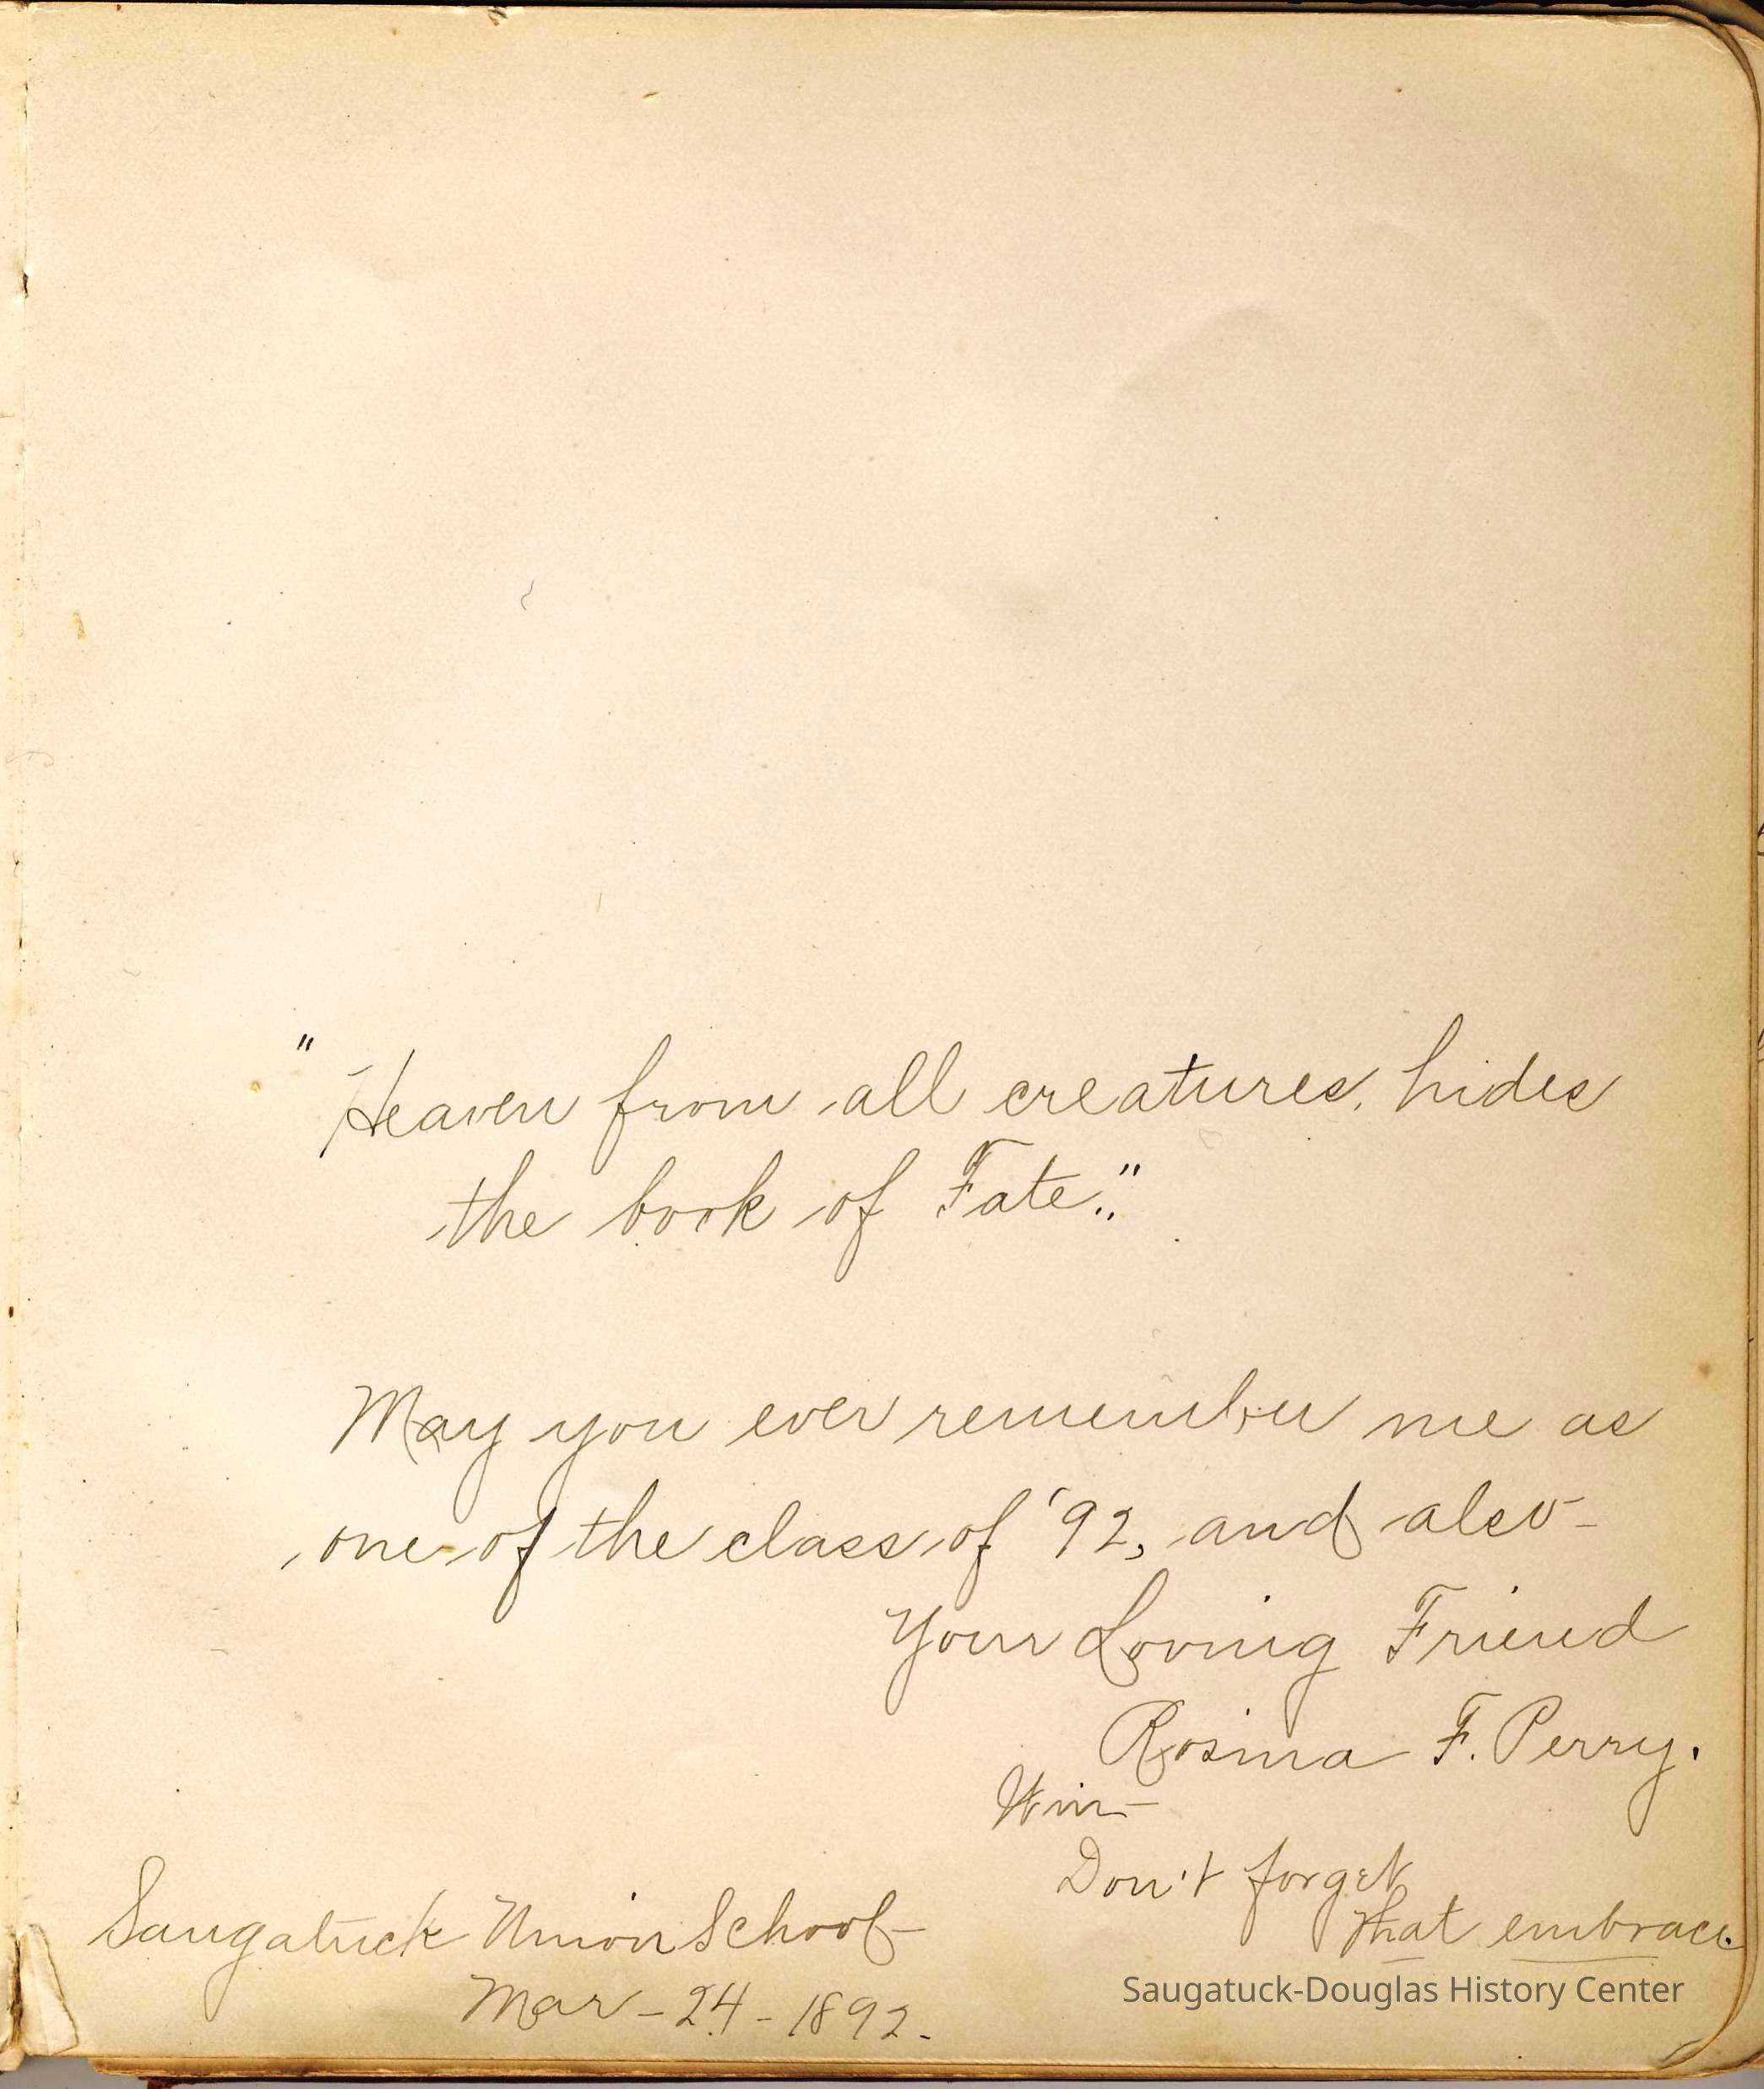 "Heaven from all creatures, hides
the book of Fate."
May you ever remember me as
one of the class of '92, and also-
Your Loving Friend
Rosina F. Perry.
Win-
Don't forget
that embrace.
Saugatuck Union School-
Mar - 24 - 1892.
Saugatuck-Douglas History Center